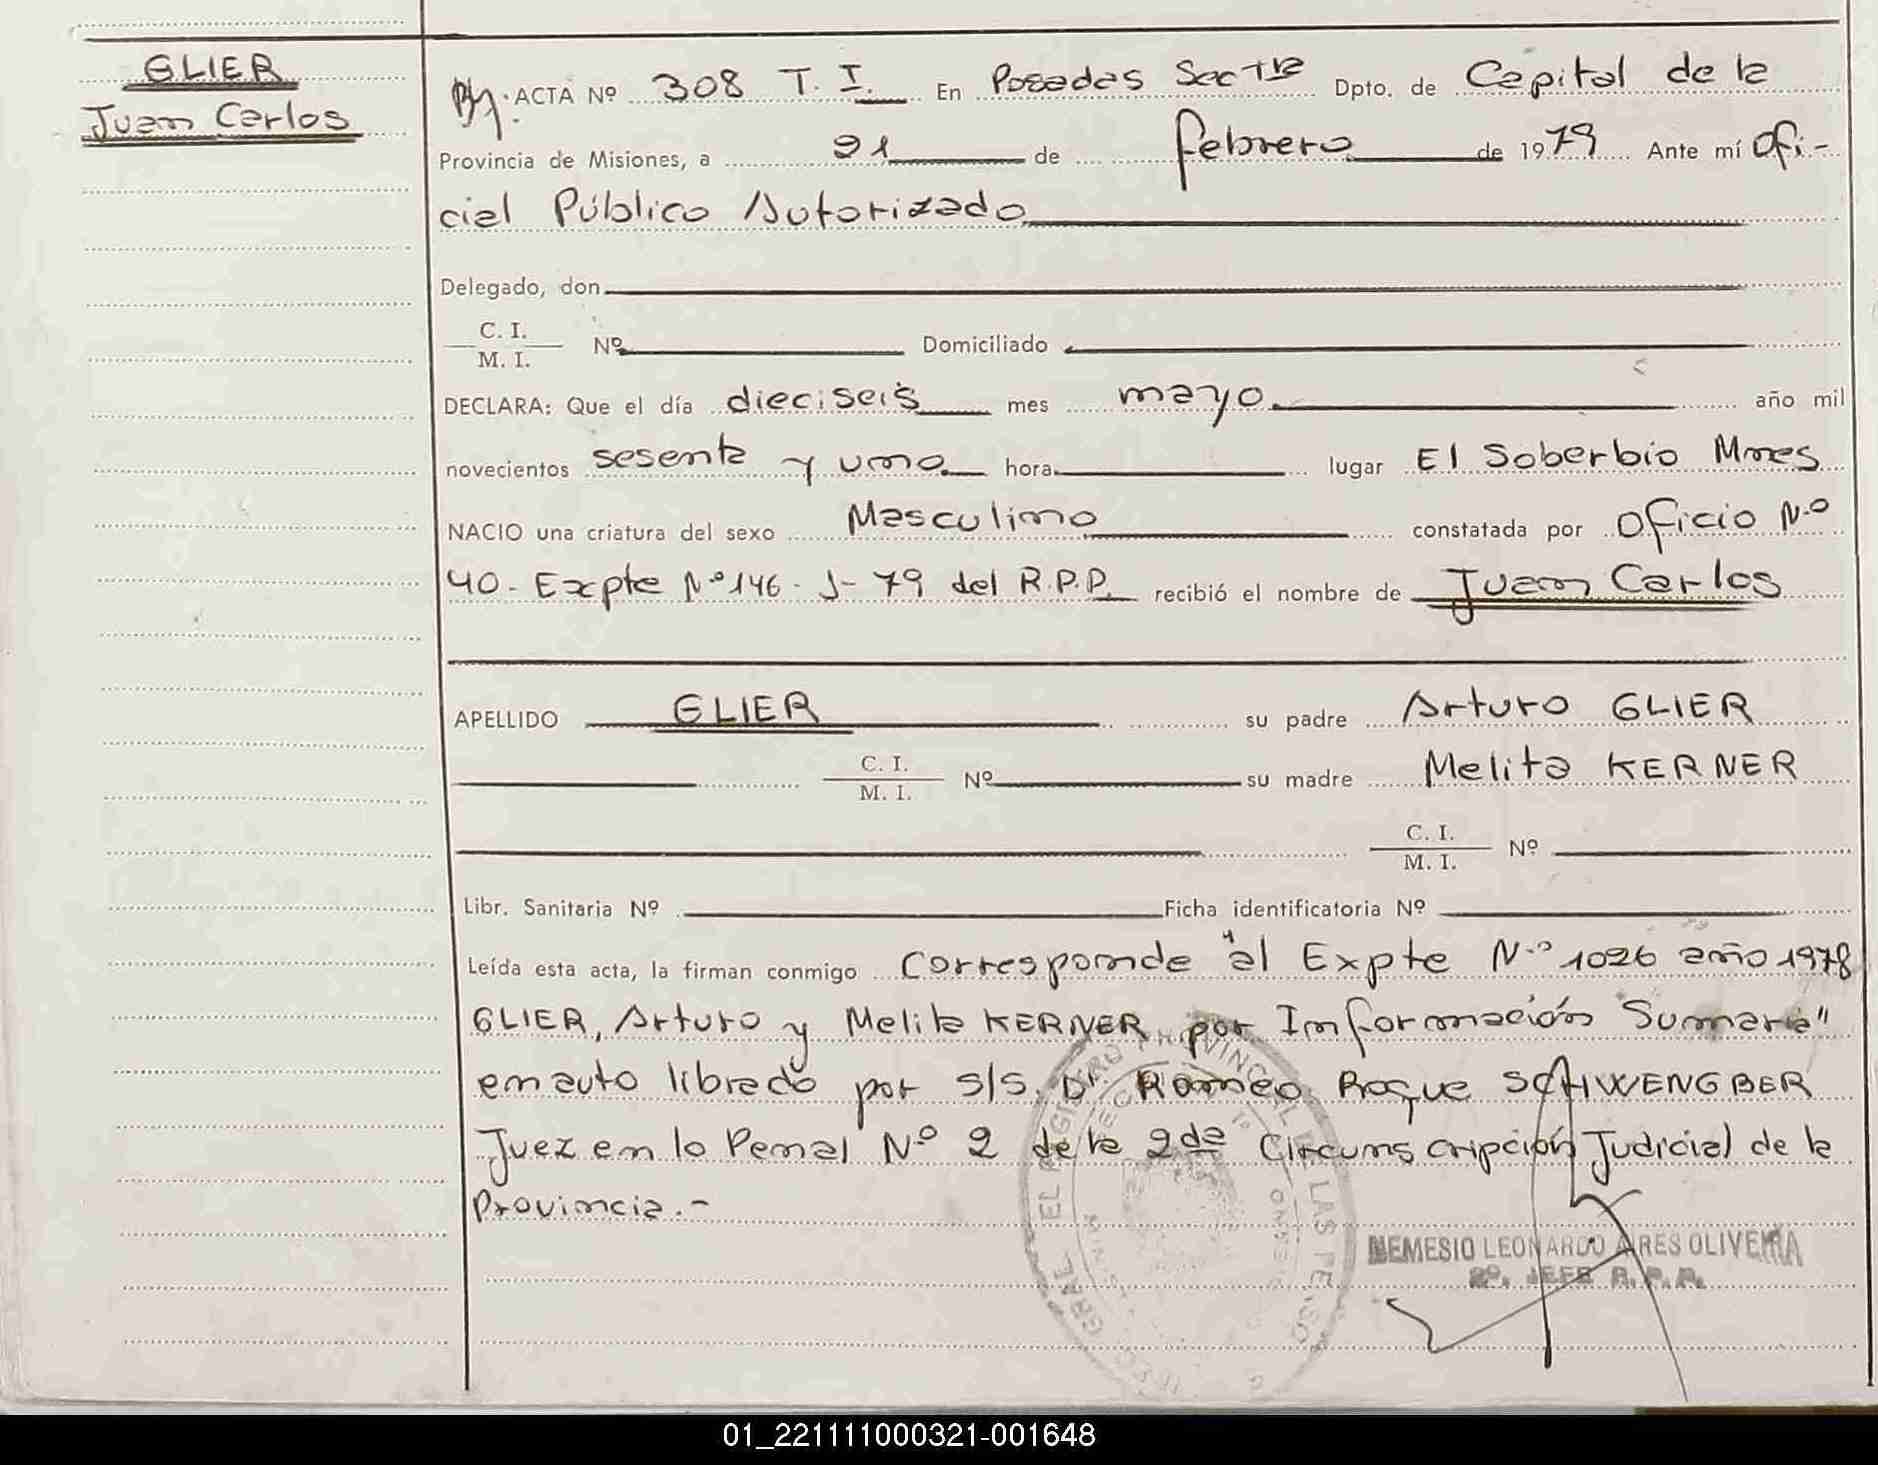 GLIER
Juan Carlos
ACTA Nº 308 T. I. En Posadas Secc 1ra Dpto. de Capital de la
Provincia de Misiones, a 21 de febrero de 1979 Ante mí Ofi-
cial Público Autorizado
Delegado, don
C. I.
M. I. Nº Domiciliado
DECLARA: Que el día dieciseis mes mayo año mil
novecientos sesenta y uno hora lugar El Soberbio Mnes
NACIO una criatura del sexo Masculino constatada por Oficio Nº
40 - Expte Nº 146 - J - 79 del R.P.P. recibió el nombre de Juan Carlos
APELLIDO GLIER su padre Arturo GLIER
C. I.
M. I. Nº su madre Melita KERNER
C. I.
M. I. Nº
Libr. Sanitaria Nº Ficha identificatoria Nº
Leída esta acta, la firman conmigo Corresponde "al Expte Nº 1026 año 1978
GLIER, Arturo y Melita KERNER por Información Sumaria"
en auto librado por S/S. Dr Romeo Roque SCHWENGBER
Juez en lo Penal Nº 2 de la 2da Circunscripción Judicial de la
Provincia.-
NEMESIO LEONARDO AIRES OLIVEIRA
2º. JEFE R. P. P.
01_221111000321-001648